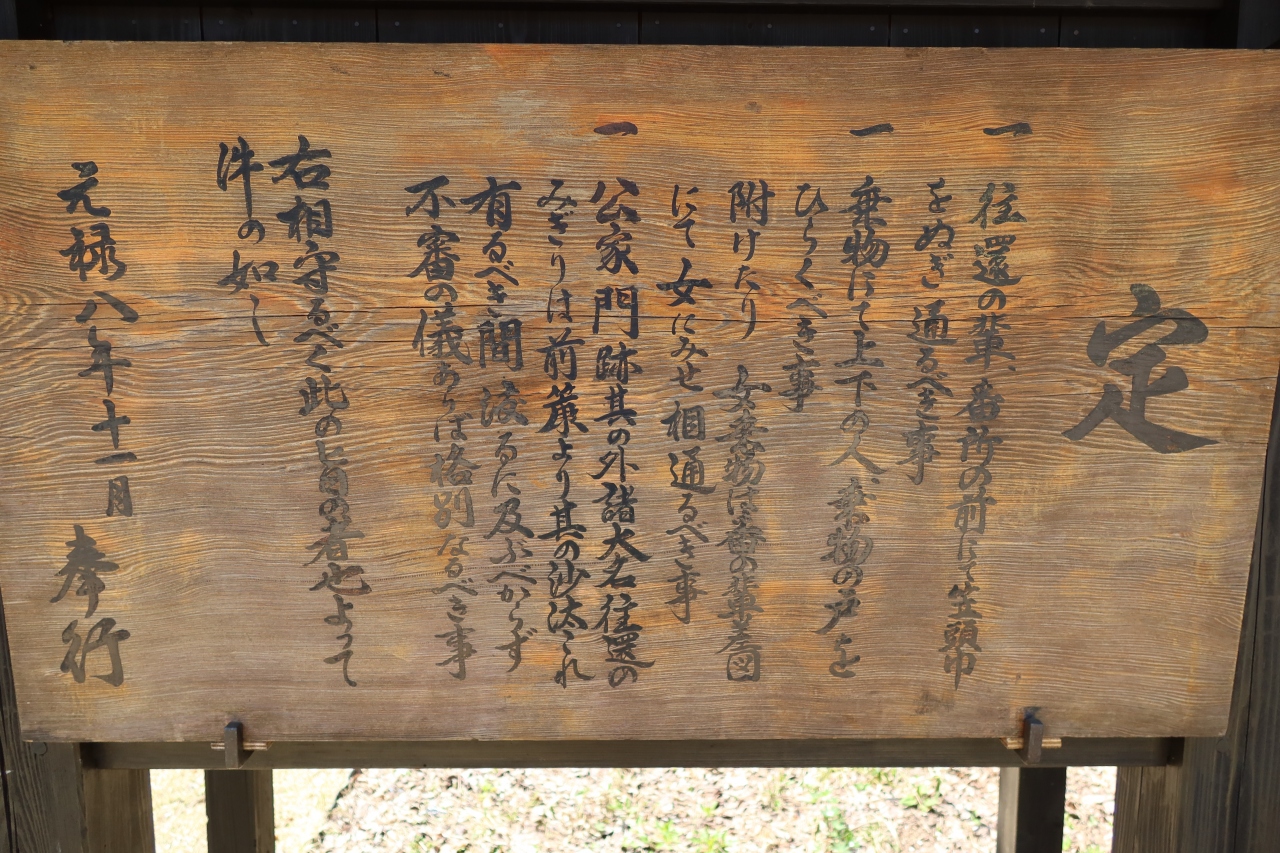 定
一 往還の輩、番所の前にて笠頭巾
をぬぎ通るべき事
一 乗物にて上下の人、乗物の戸を
ひらくべき事
附けたり 女乗物は番の輩差図
にて女にみせ相通るべき事
一 公家門跡其の外諸大名往還の
みぎりは前簾より其の沙汰これ
有るべき間改るに及ぶべからず
不審の儀あらば格別なるべき事
右相守るべく此の旨の者也よって
件の如し
元禄八年十一月 奉行